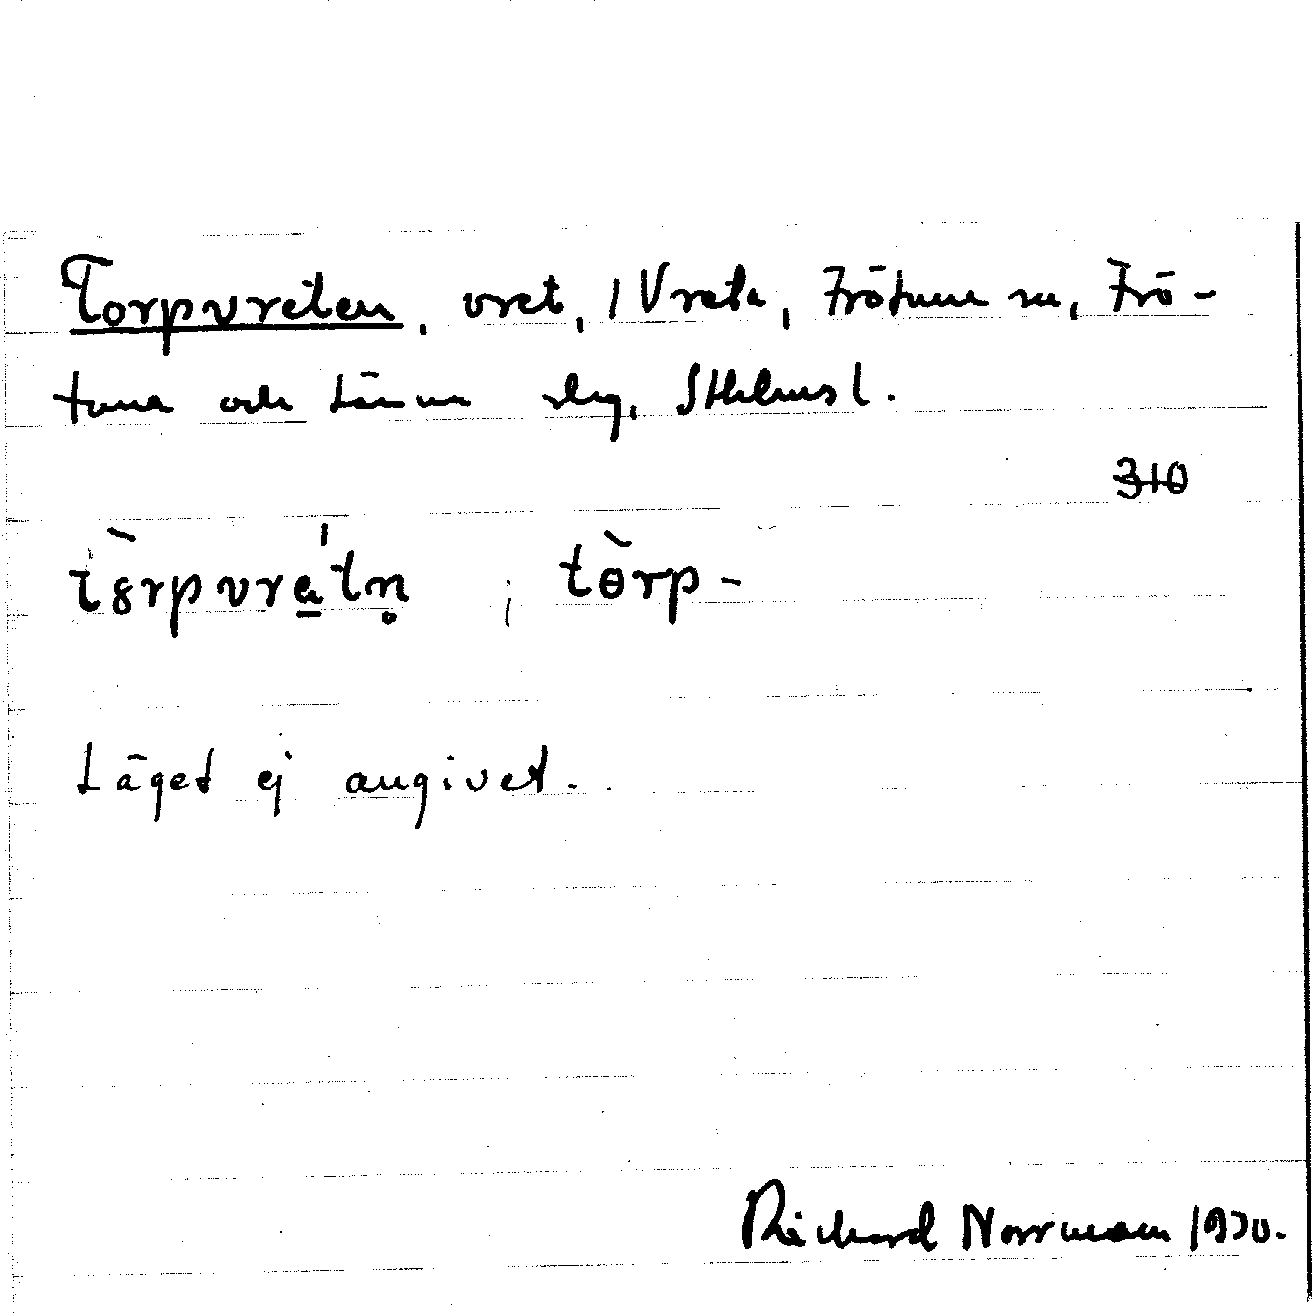 Torpvreten, vret, 1 Vreta, Frötuna sn, Frö-
tuna och Länna slg, Sthlms l.
310
tòrpvre̱tn̥ ; tɵ̀rp-
Läget ej angivet.
Richard Norrman 1930.